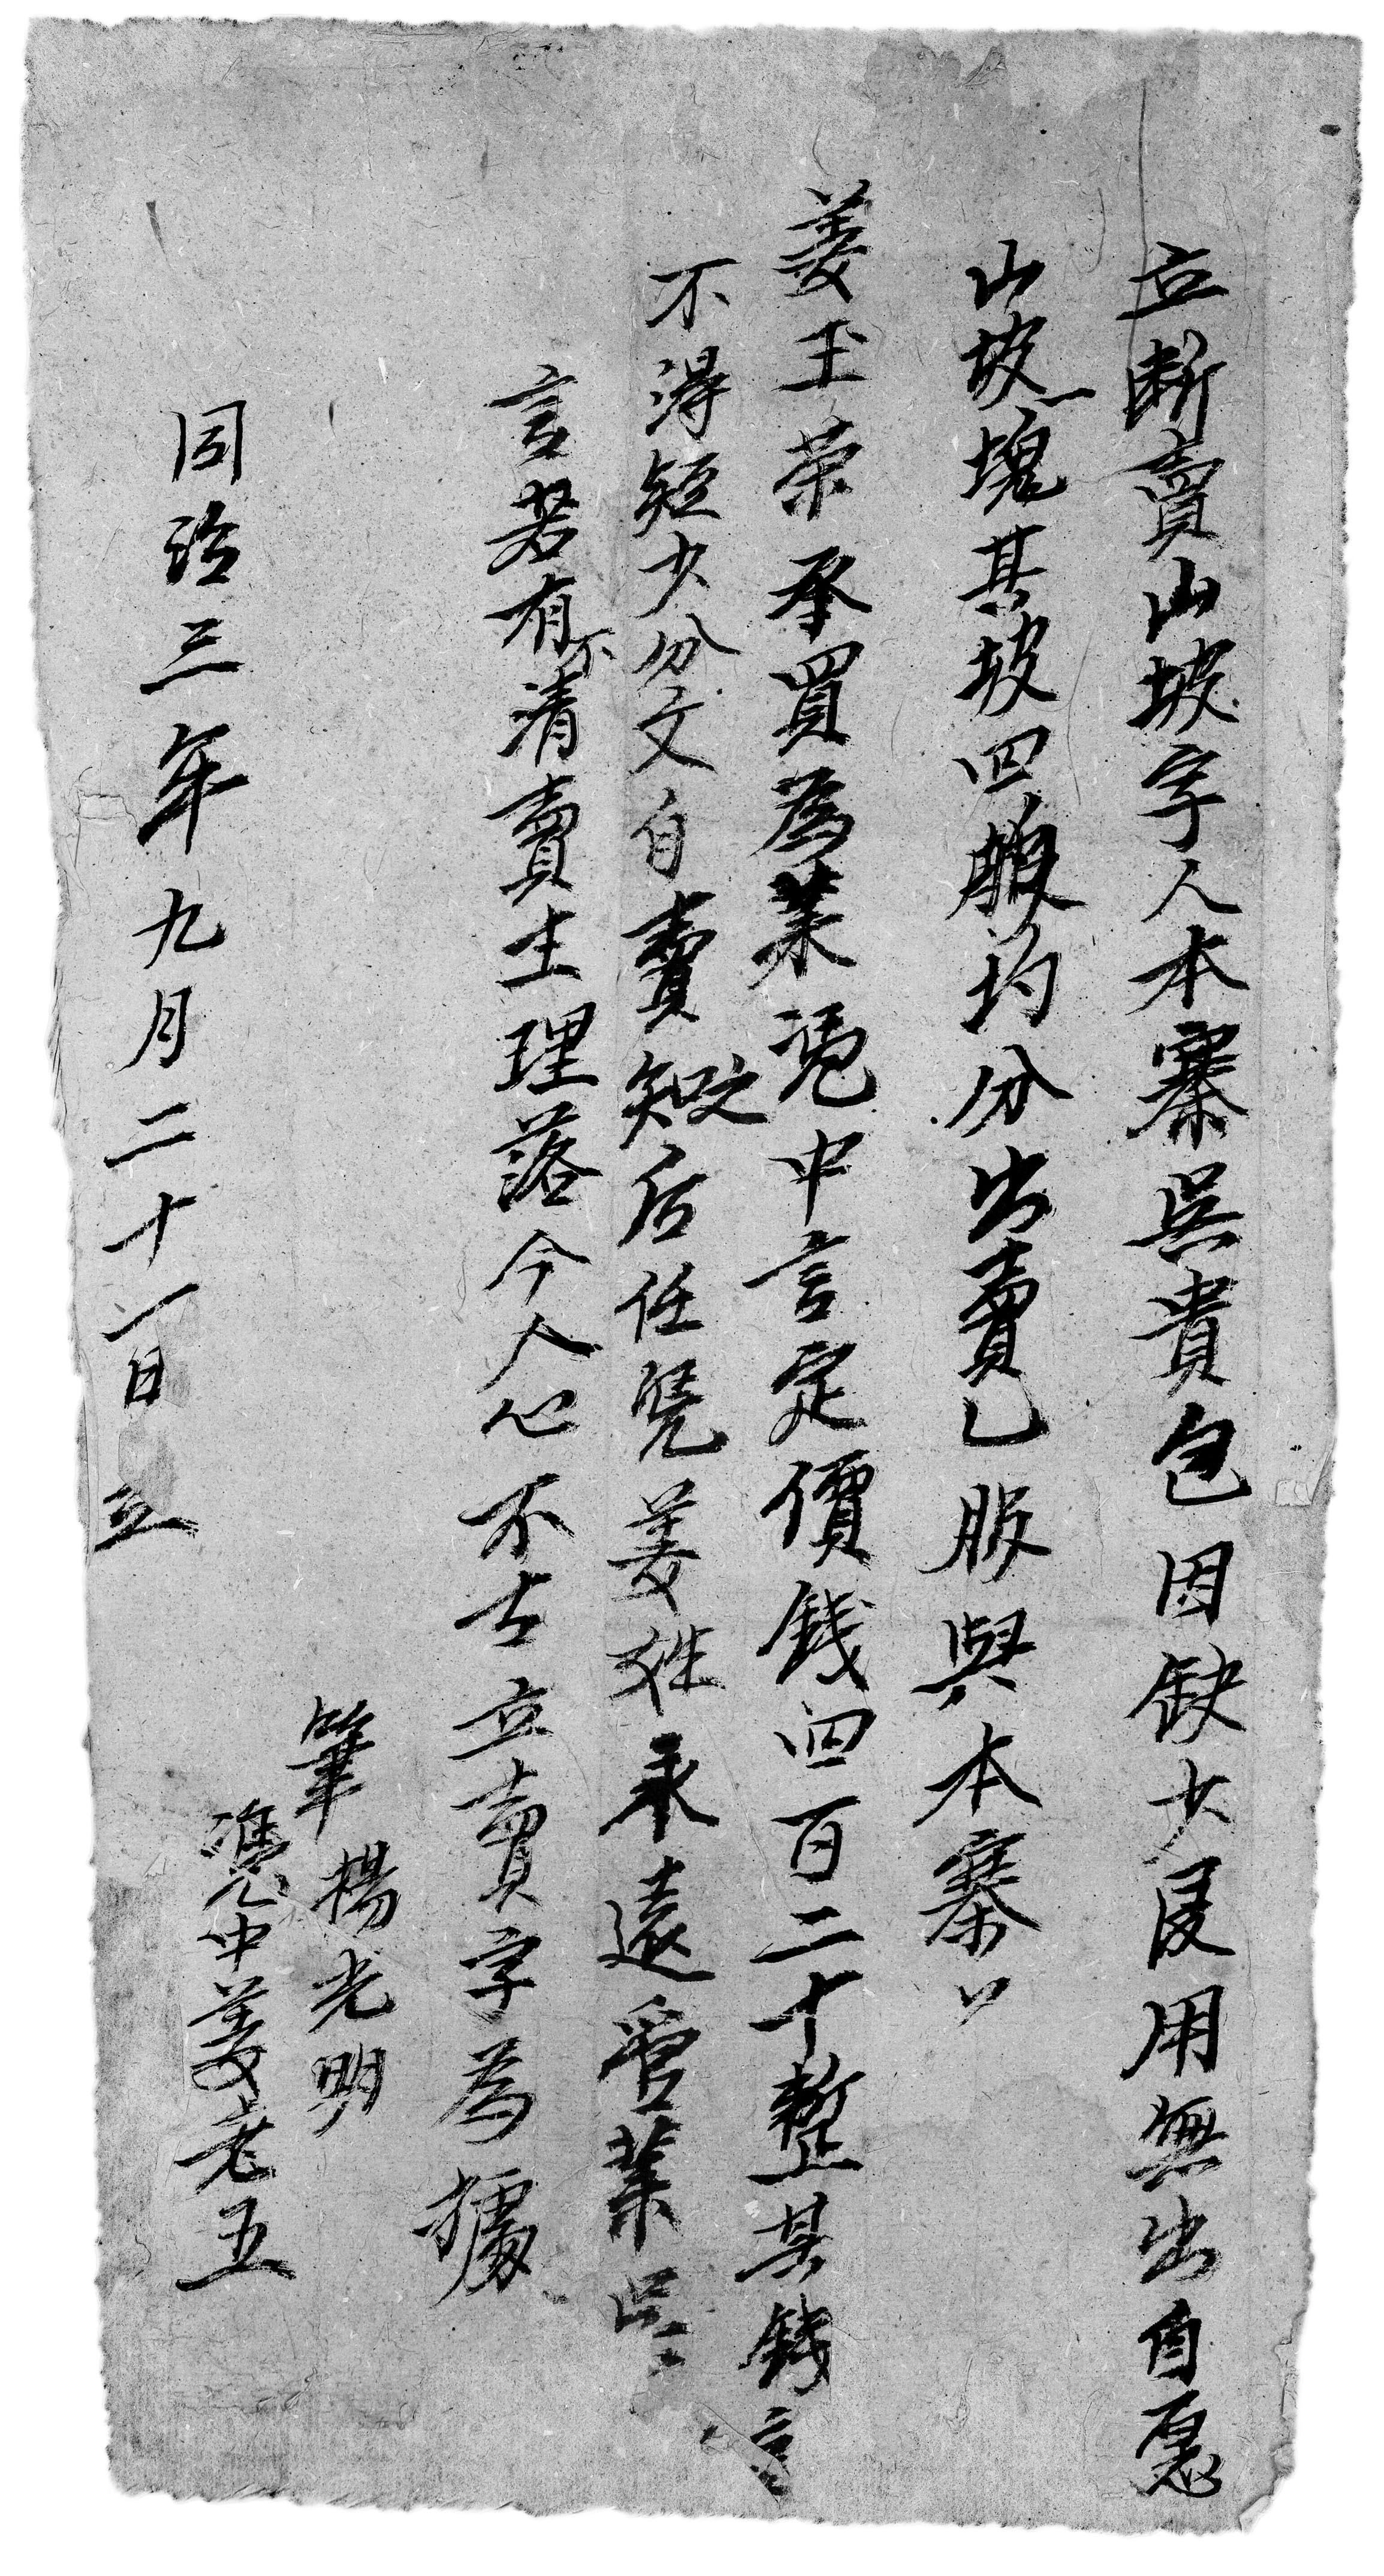 立断賣山坡字人本寨吳貴包因缺少侵用無出自愿
山坡一塊其坡四股均分出賣乚股與本寨
姜玉荣承買為業凴中言定價銭四百二十整其銭言
不淂短少分文自賣知之后任凭姜姓永遠管業吳
言若有不清賣主理落今人心不古立賣字為據
筆楊光明
凴中姜老五
同治三年九月二十一日立